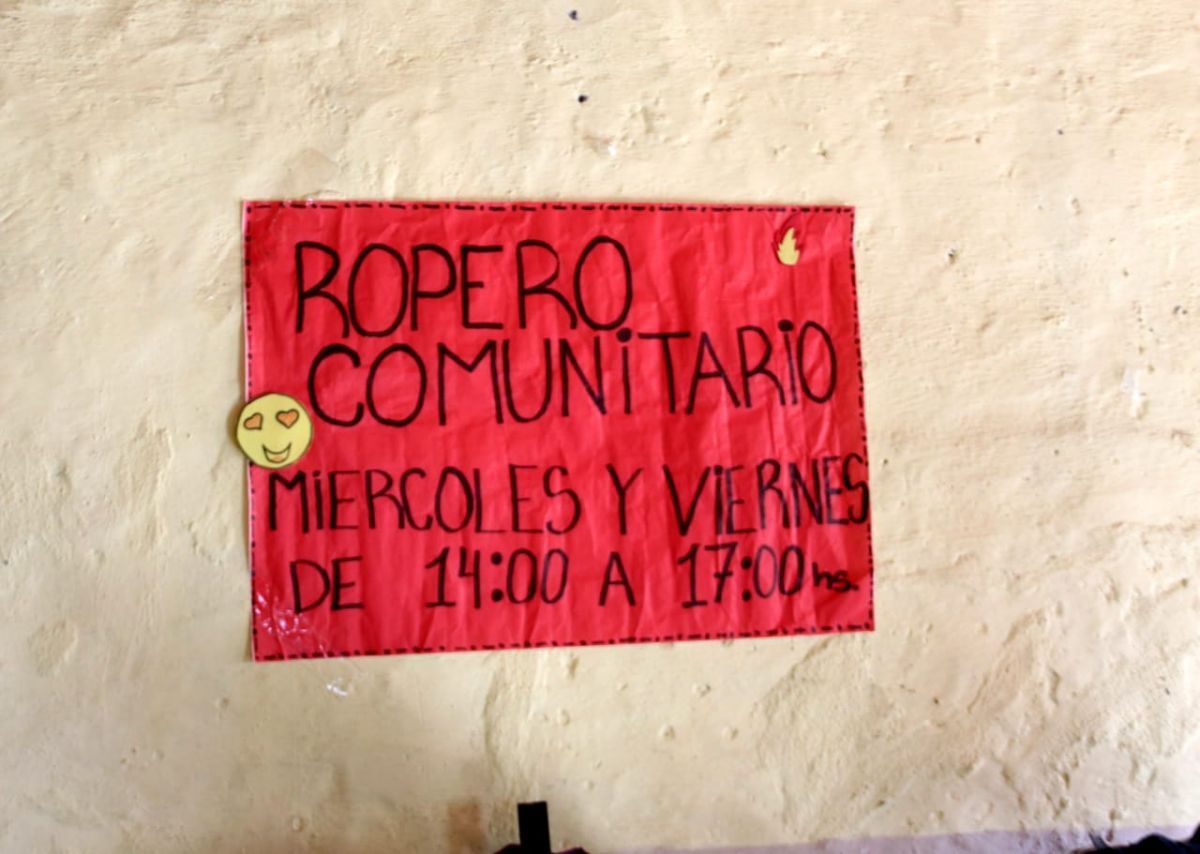 ROPERO
COMUNiTARiO
MiERCOLES Y ViERNES
DE 14:00 A 17:00 hs.